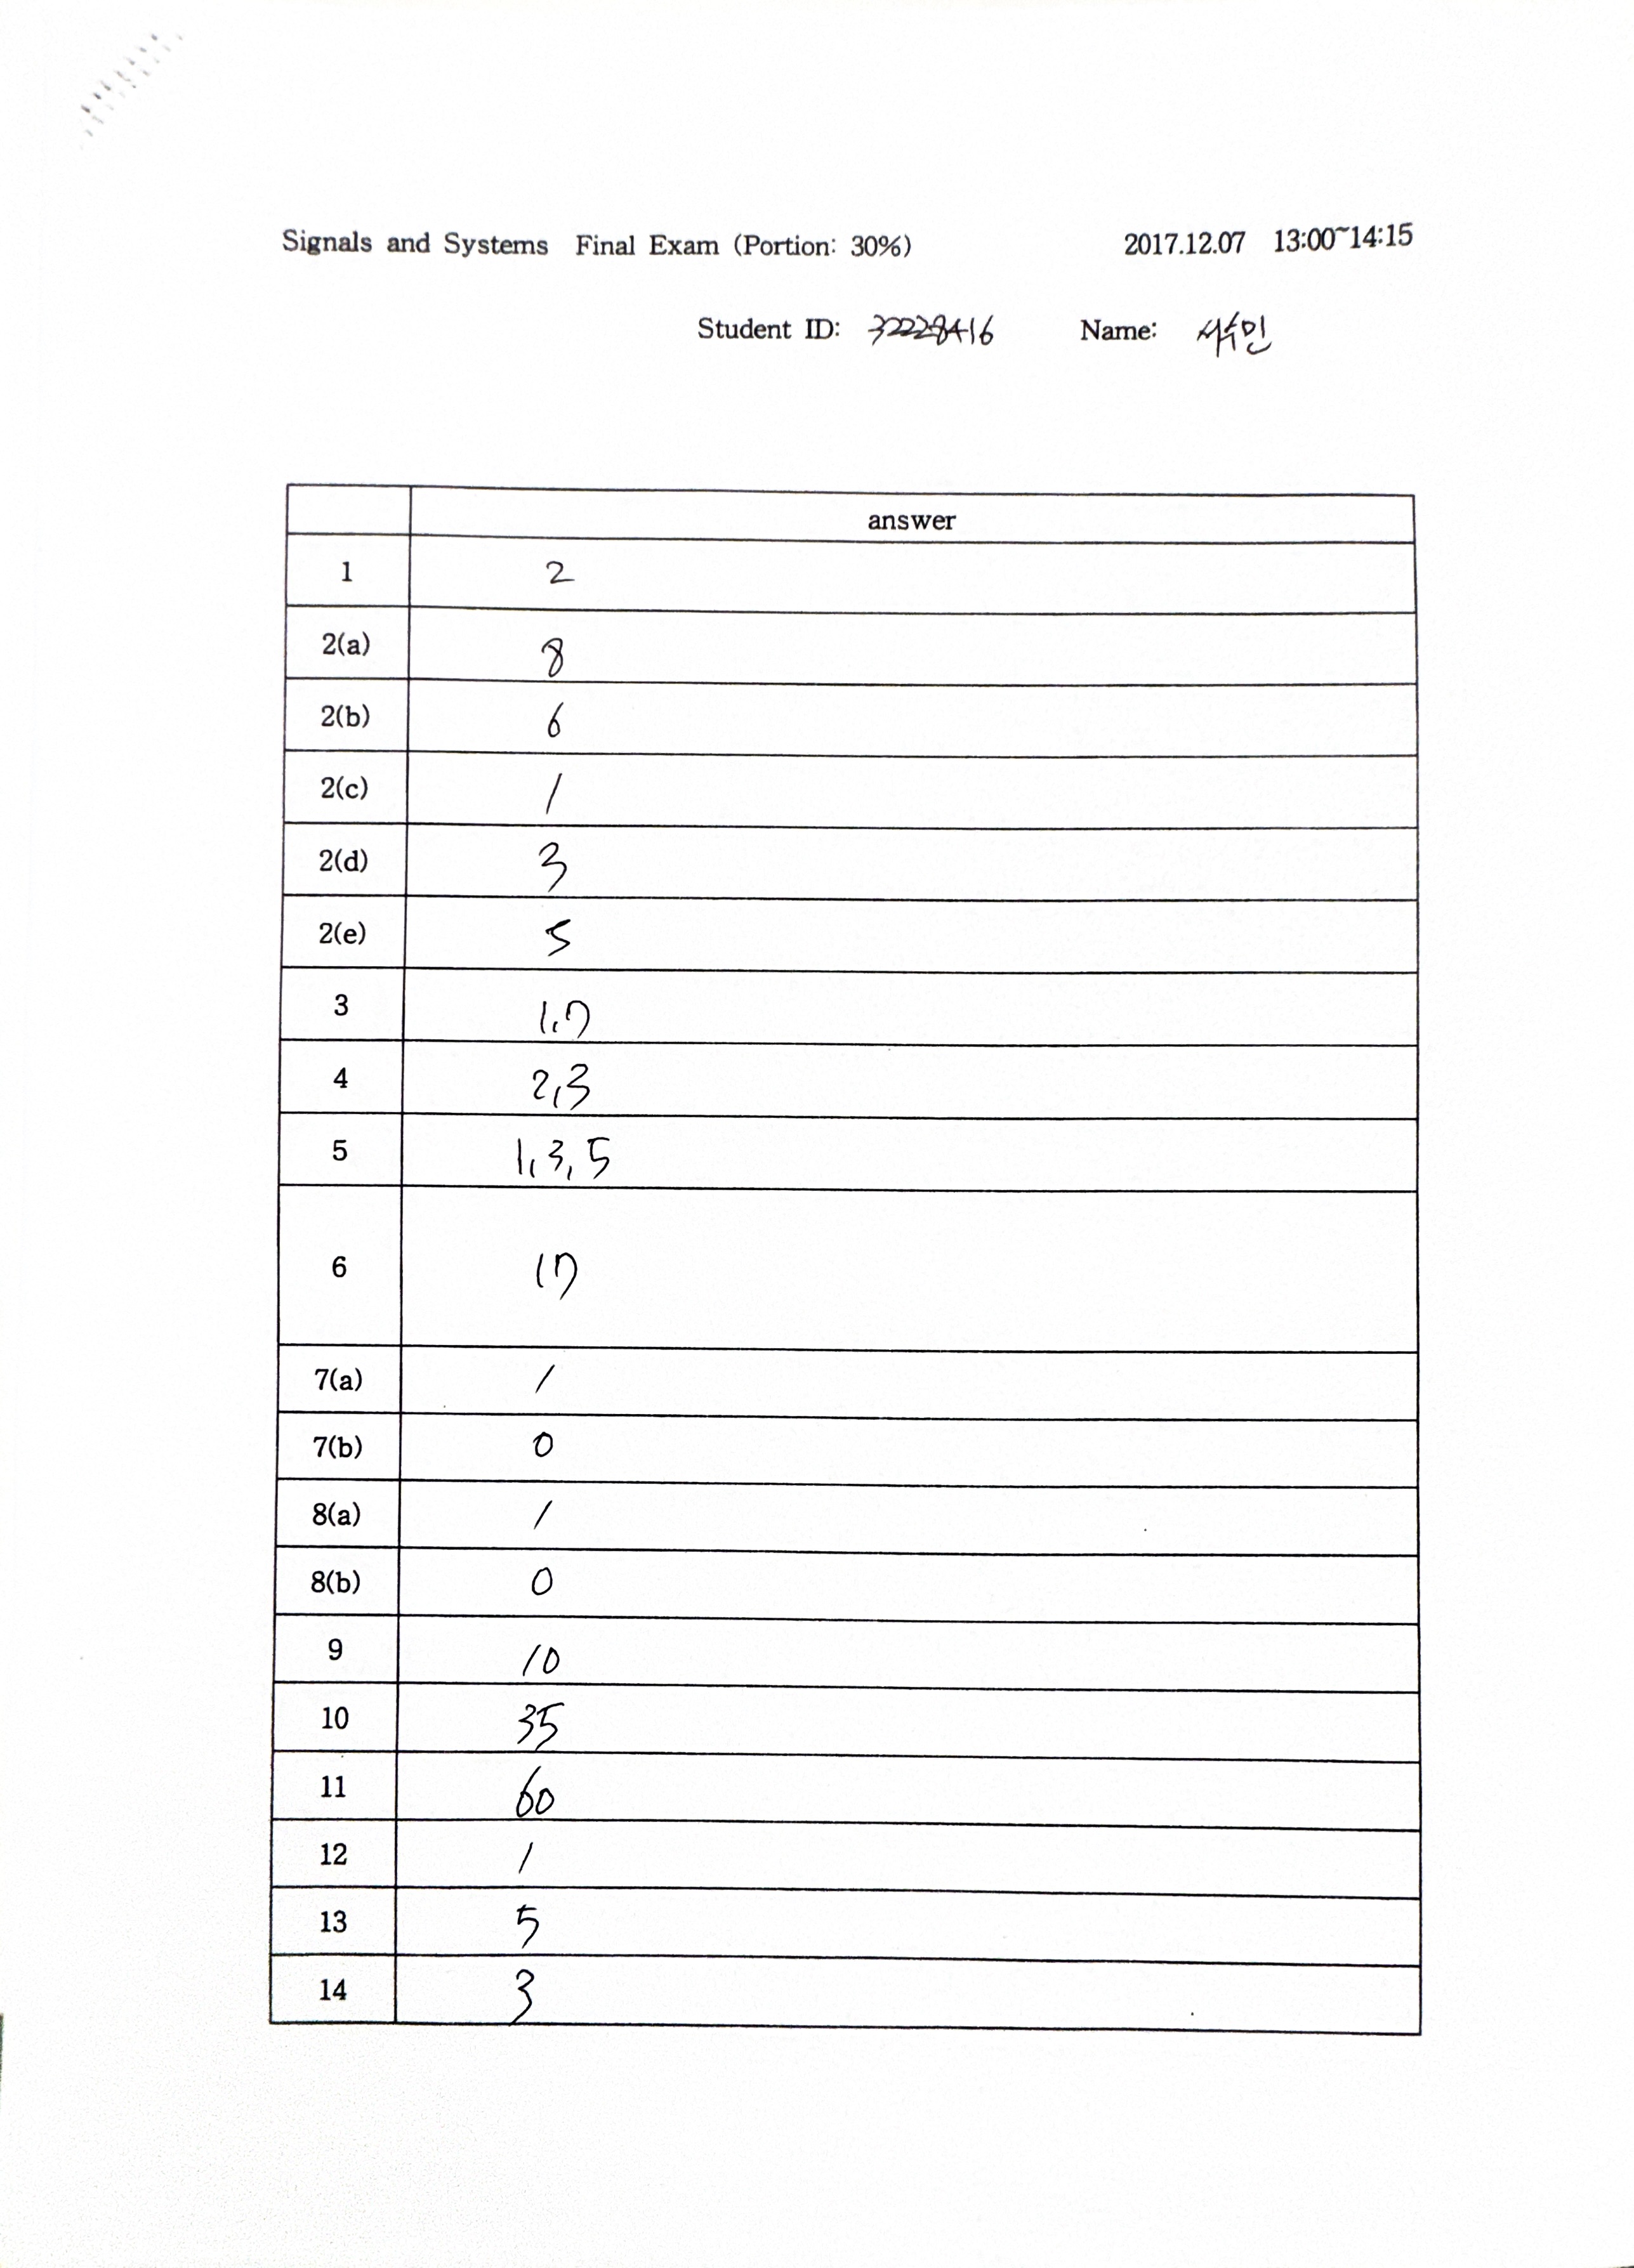 Signals and Systems Final Exam (Portion: 30%) 2017.12.07 13:00~14:15
Student ID: 32228416 Name: 서수민
answer
1 2
2(a) 8
2(b) 6
2(c) 1
2(d) 3
2(e) 5
3 1,7
4 2,3
5 1,3,5
6 17
7(a) 1
7(b) 0
8(a) 1
8(b) 0
9 10
10 35
11 60
12 1
13 5
14 3